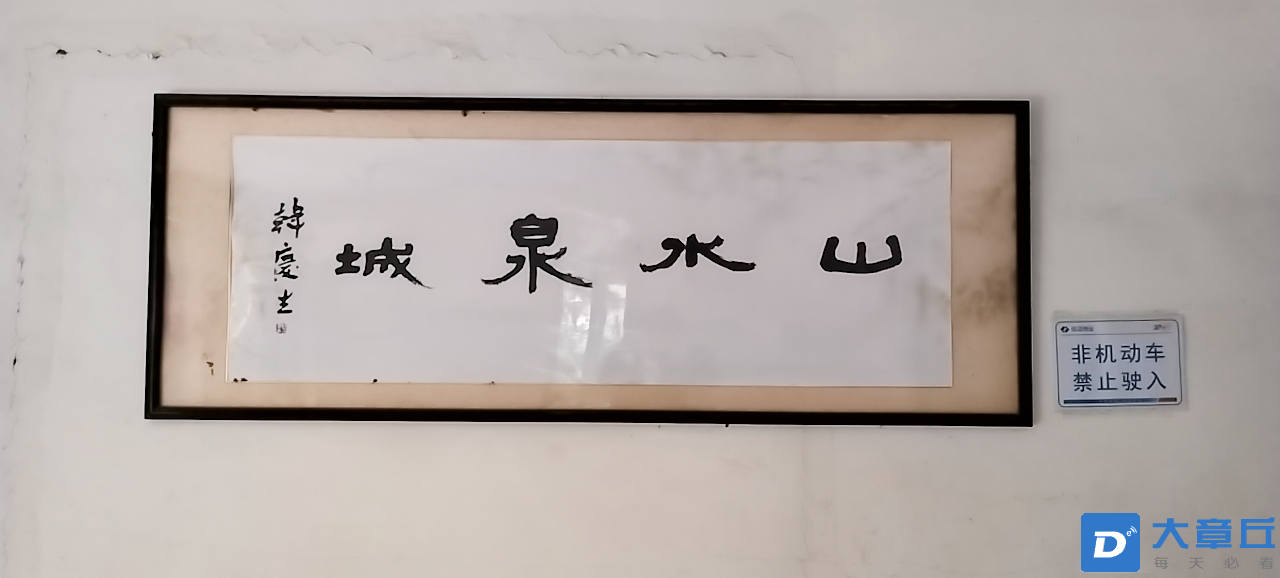 山水泉城
韓慶生
非机动车
禁止驶入
大章丘
每天必看